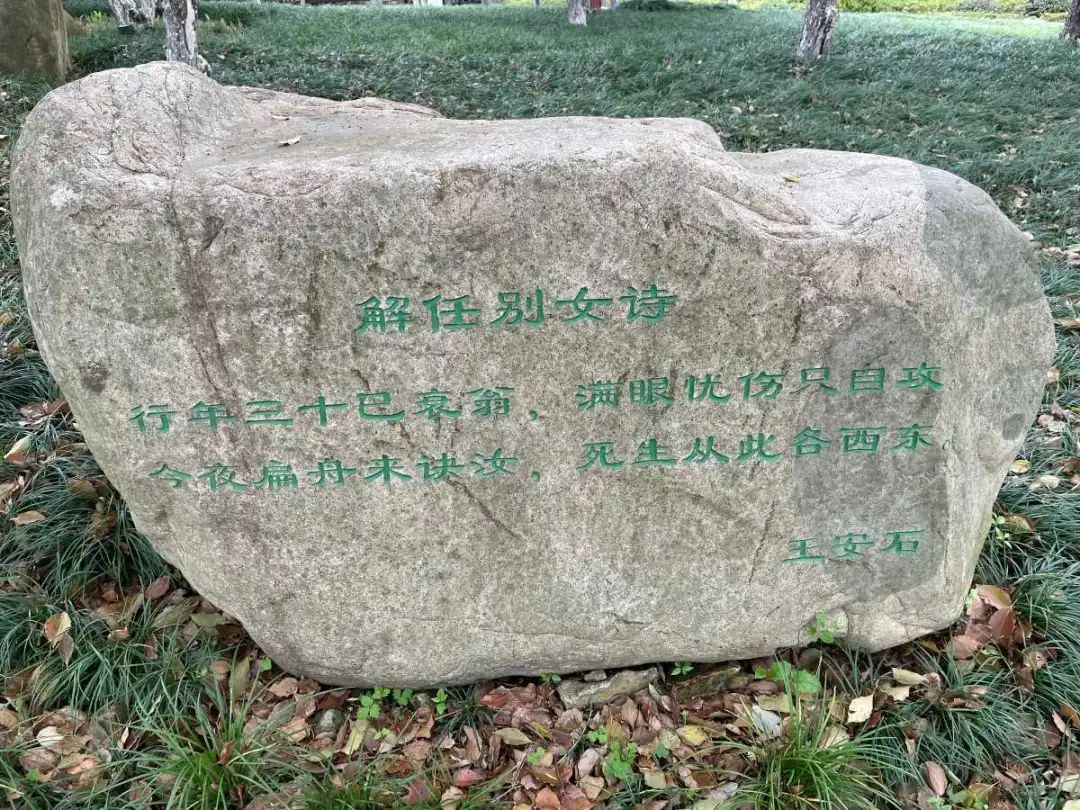 解任别女诗
行年三十已衰翁，满眼忧伤只自攻
今夜扁舟来诀汝，死生从此各西东。
王安石